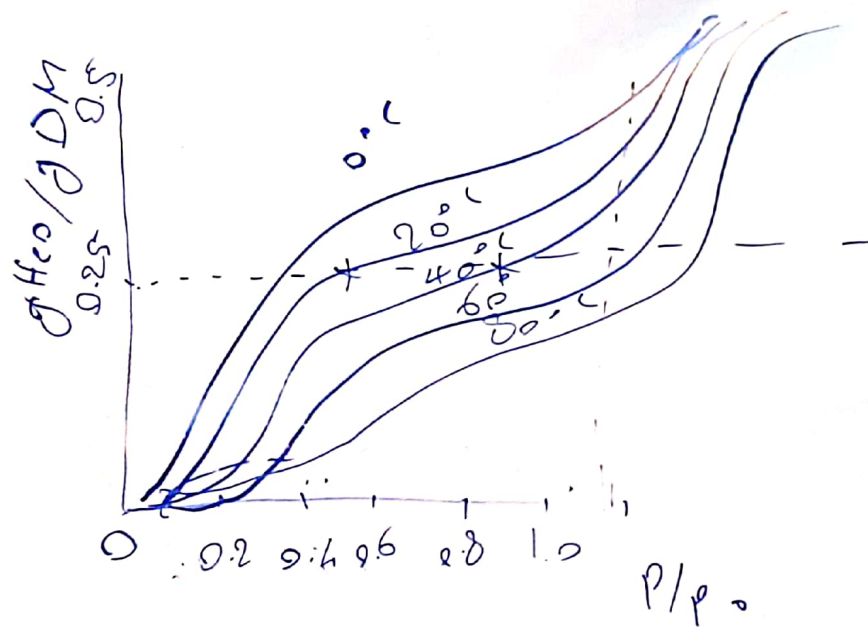 gH₂O/gDM
0.5
0.25
0°C
20°C
40°C
60°
80°C
0 0.2 0.4 0.6 0.8 1.0
P/P₀